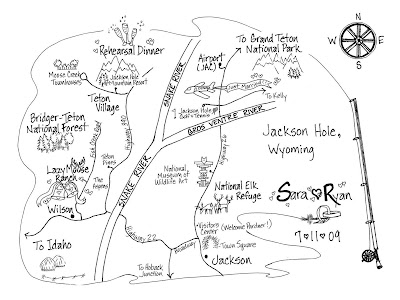 Rehearsal Dinner
Moose Creek
Townhouses
Jackson Hole
Mountain Resort
Teton
Village
Bridger-Teton
National Forest
Fish Creek Road
Highway 390
Teton Pines
The Aspens
Lazy Moose
Ranch
Wilson
To Idaho
SNAKE RIVER
SNAKE RIVER
To Grand Teton
National Park
Airport
(JAC)
To Kelly
Jackson Hole
Golf & Tennis
GROS VENTRE RIVER
Highway 26
National
Museum of
Wildlife Art
National Elk
Refuge
Visitors
Center
(Welcome Pardner!)
Town Square
Jackson
Broadway
Highway 22
To Hoback
Junction
N
W
E
S
Jackson Hole,
Wyoming
Sara Ryan
7 11 09